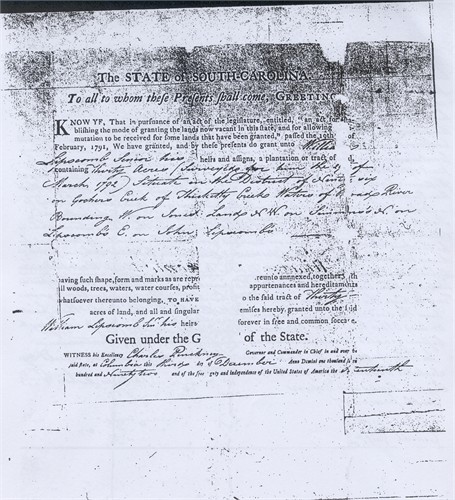 The STATE of SOUTH-CAROLINA.
To all to whom these Presents shall come, GREETING
KNOW YE, That in pursuance of an act of the legislature, entitled, "an act for
blishing the mode of granting the lands now vacant in this state, and for allowing
mutation to be received for some lands that have been granted," passed the 19th
February, 1791, We have granted, and by these presents do grant unto Willia
Lipscomb Senior his heirs and assigns, a plantation or tract of
containing Thirty Acres Surveyed for him the of
March 1792) Situate in the District of Ninety six
on Goshers Creek of Thicketty Creek Waters of Broad River
Bounding W. on Land N.W. on N. on
Lipscombs E. on John Lipscombs
having such shape, form and marks as are repr reunto annexed, together with
all woods, trees, waters, water courses, profit appurtenances and hereditaments
whatsoever thereunto belonging, TO HAVE o the said tract of Thirty
acres of land, and all and singular emises hereby granted unto the said
William Lipscomb Sr his heirs forever in free and common soccage
Given under the G of the State.
WITNESS his Excellency Charles Pinckney Governor and Commander in Chief in and over
said state, at Columbia this third day of December Anno Domini one thousand
hundred and Ninety two and of the Sovereignty and Independence of the United States of America the Seventeenth